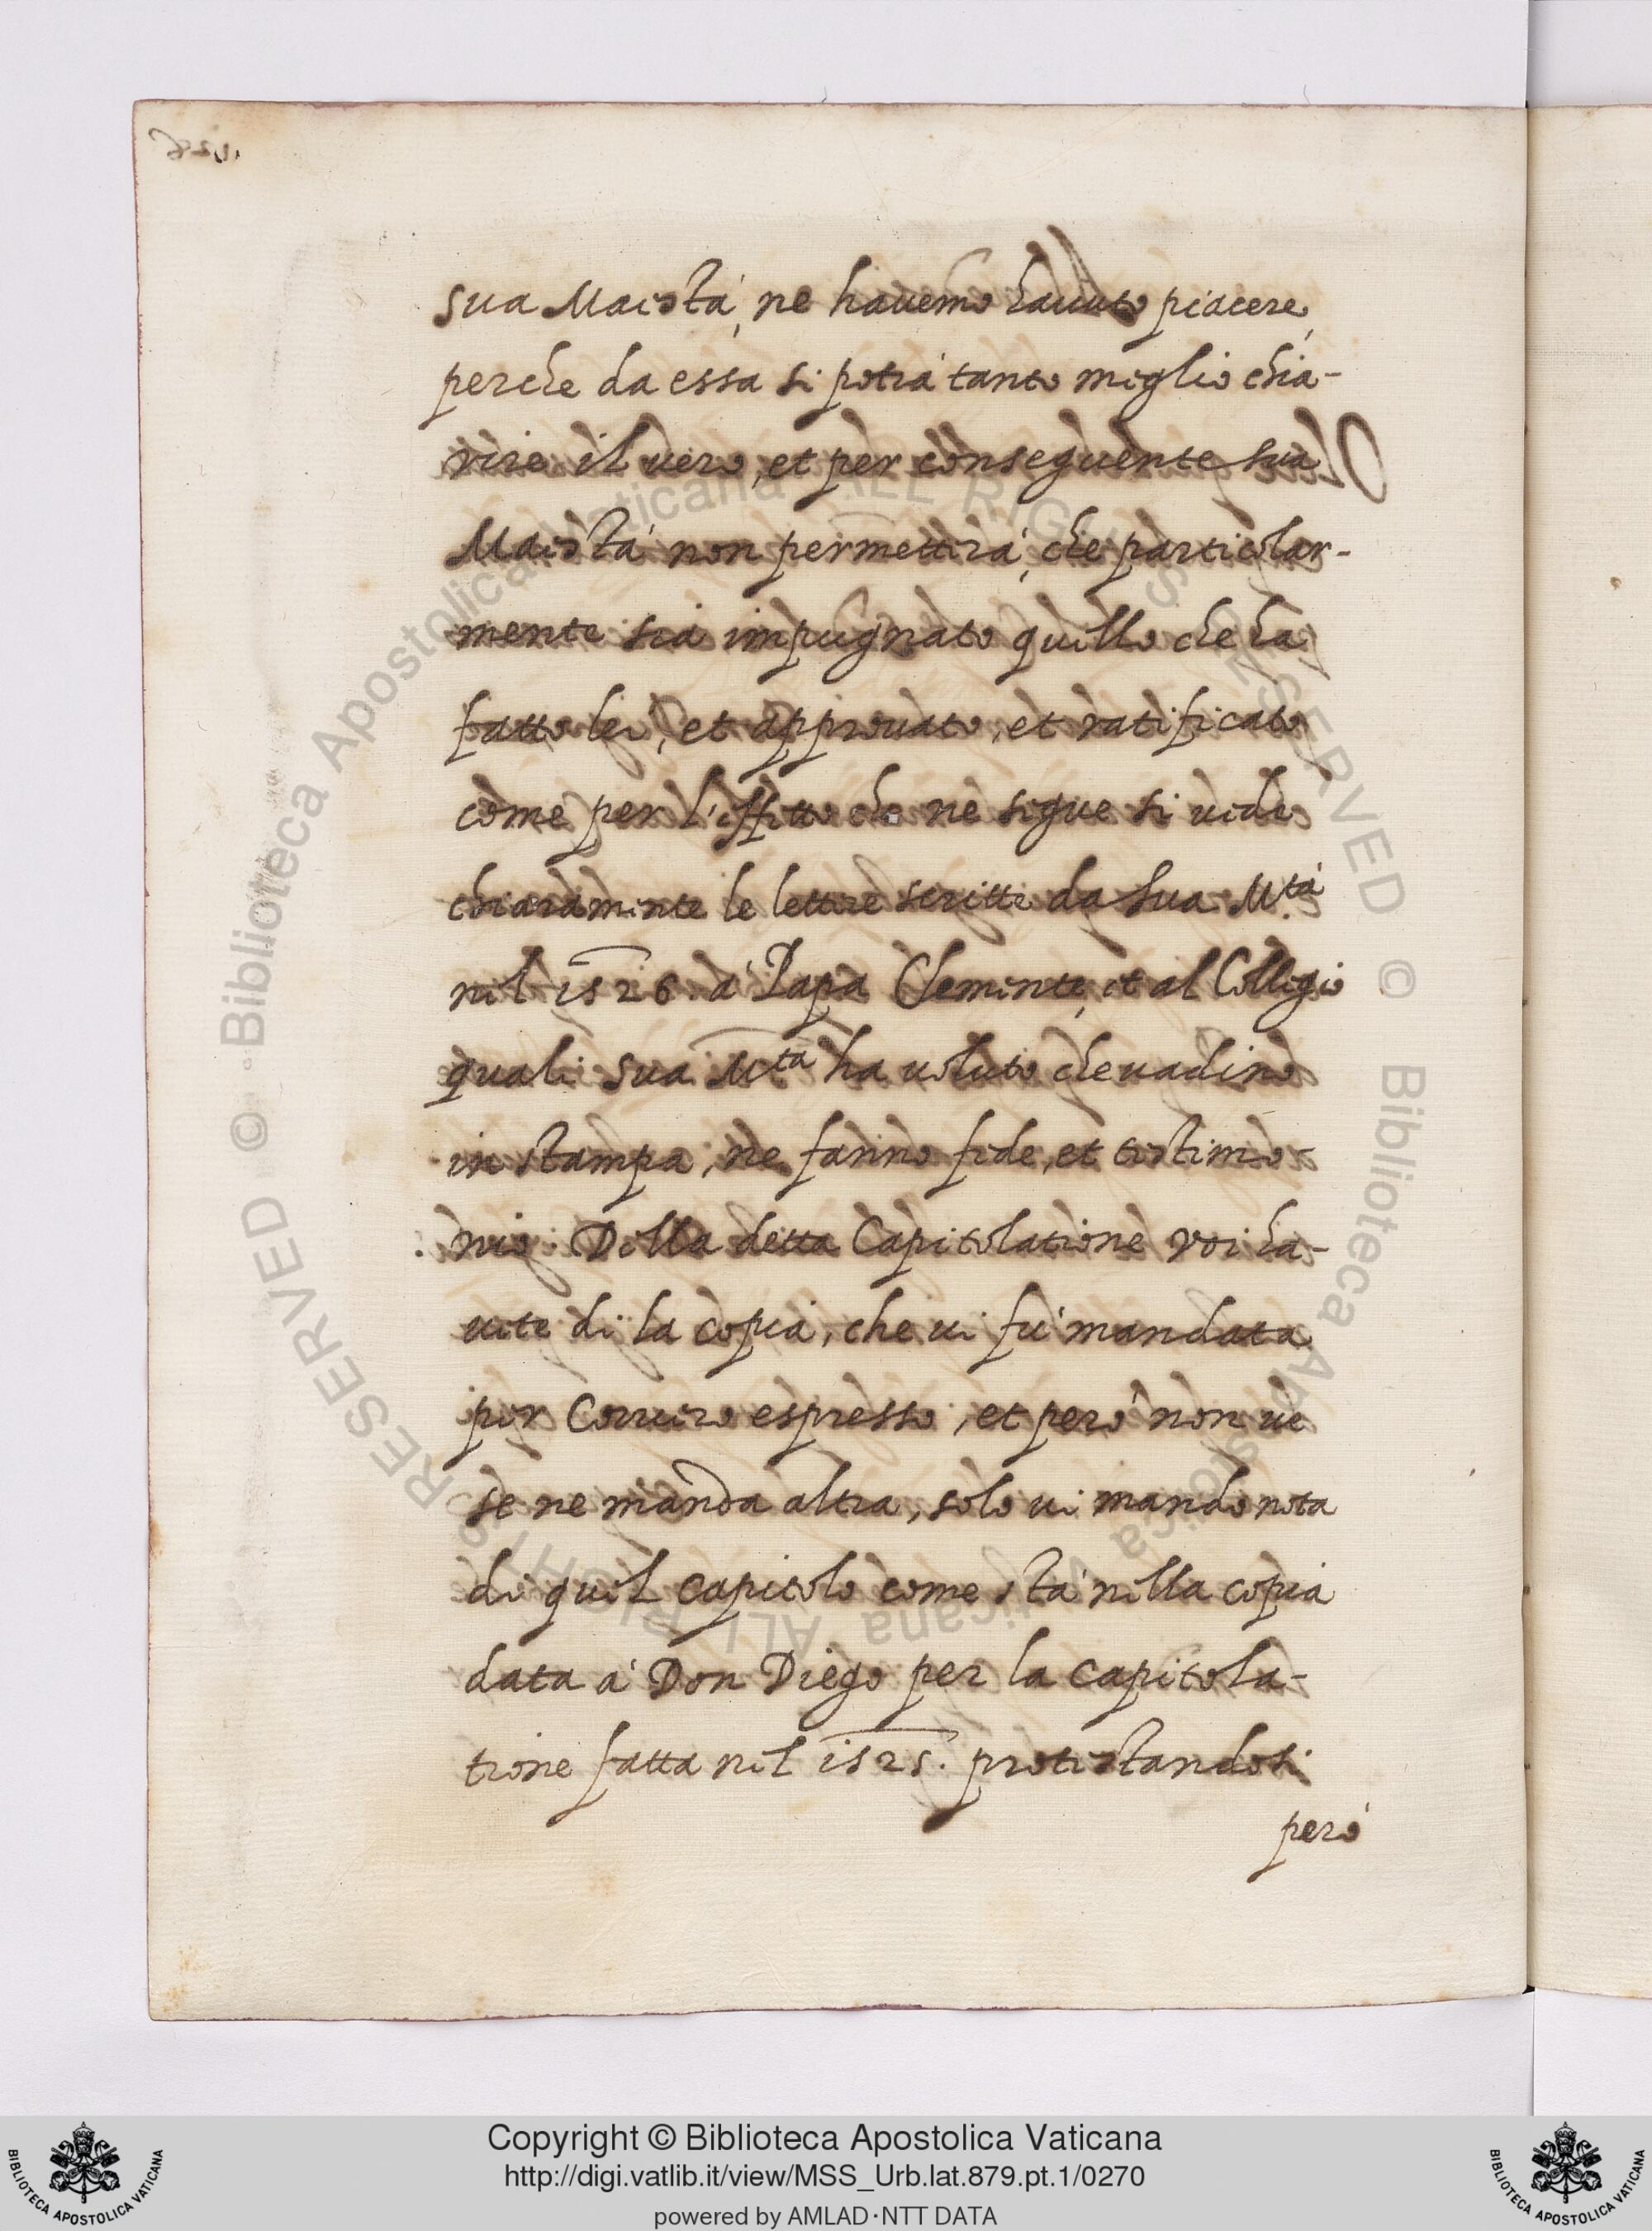 sua Maestà, ne havemo havuto piacere,
perche da essa si potrà tanto meglio chia-
rire il vero, et per consequente sua
Maestà non permetterà, che particolar-
mente sia impugnato quello che ha
fatto lei, et approuato, et ratificato
come per l'effetto che ne segue si uede
chiaramente le lettere scritte da sua M.tà
nel 1526. à Papa Clemente, et al Collegio
quali sua Mtà ha uoluto che uadino
in stampa, ne fanno fede, et testimo-
nio. Della detta Capitolatione voi ha-
uete di la copia, che ui fù mandata
per Corriero espresso, et però non ue
se ne manda altra, solo ui mando nota
di quel capitolo come stà nella copia
data à Don Diego per la capitola-
tione fatta nel 1525. protestandosi
però
Copyright © Biblioteca Apostolica Vaticana
http://digi.vatlib.it/view/MSS_Urb.lat.879.pt.1/0270
powered by AMLAD·NTT DATA
BIBLIOTECA APOSTOLICA VATICANA
BIBLIOTECA APOSTOLICA VATICANA